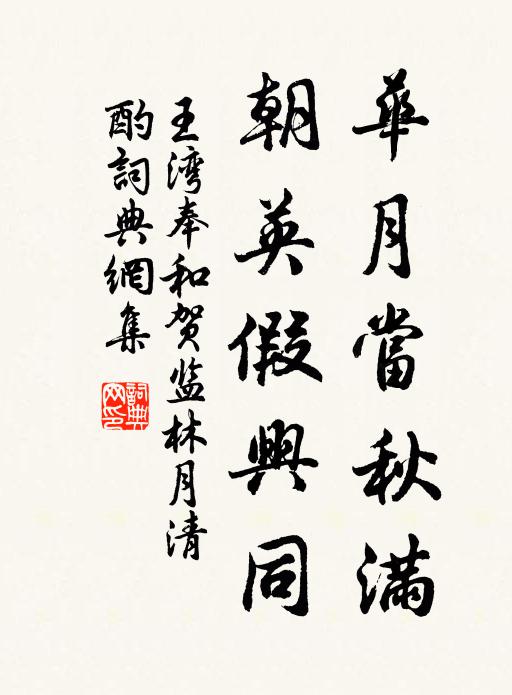 華月當秋滿
朝英假興同
王湾奉和贺监林月清
酌詞典網集
詞典網印